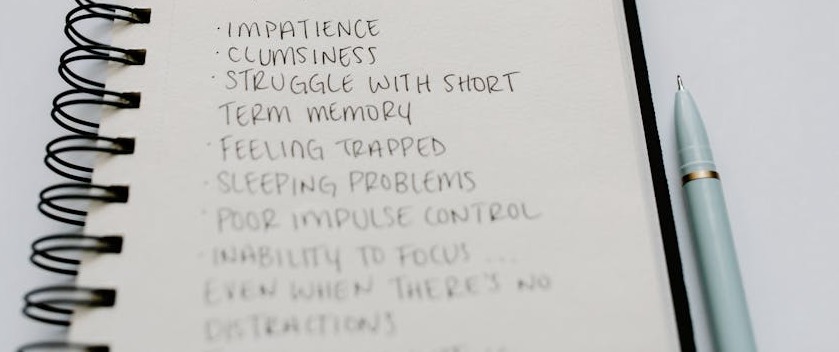 · IMPATIENCE
· CLUMSINESS
· STRUGGLE WITH SHORT
TERM MEMORY
· FEELING TRAPPED
· SLEEPING PROBLEMS
· POOR IMPULSE CONTROL
· INABILITY TO FOCUS ...
EVEN WHEN THERE'S NO
DISTRACTIONS